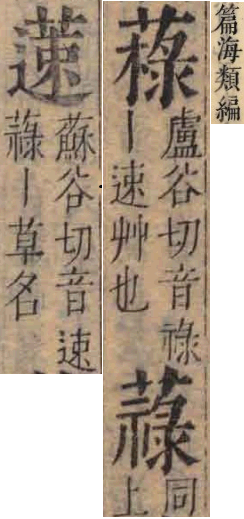 篇海類編
盧谷切音祿
丨速艸也
同
上
蘇谷切音速
丨草名